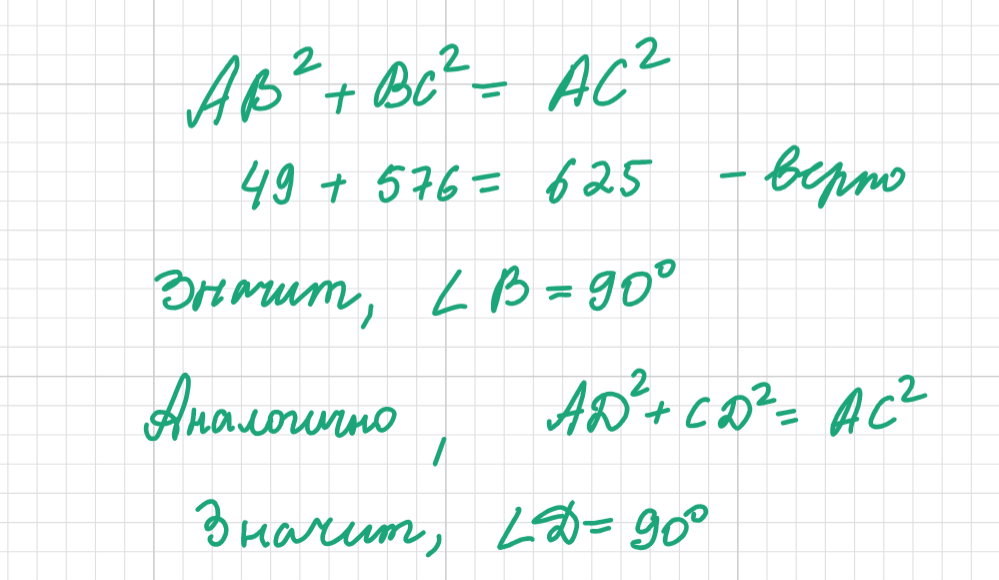 AB² + BC² = AC²
49 + 576 = 625 – верно
Значит, ∠B = 90°
Аналогично, AD² + CD² = AC²
Значит, ∠D = 90°